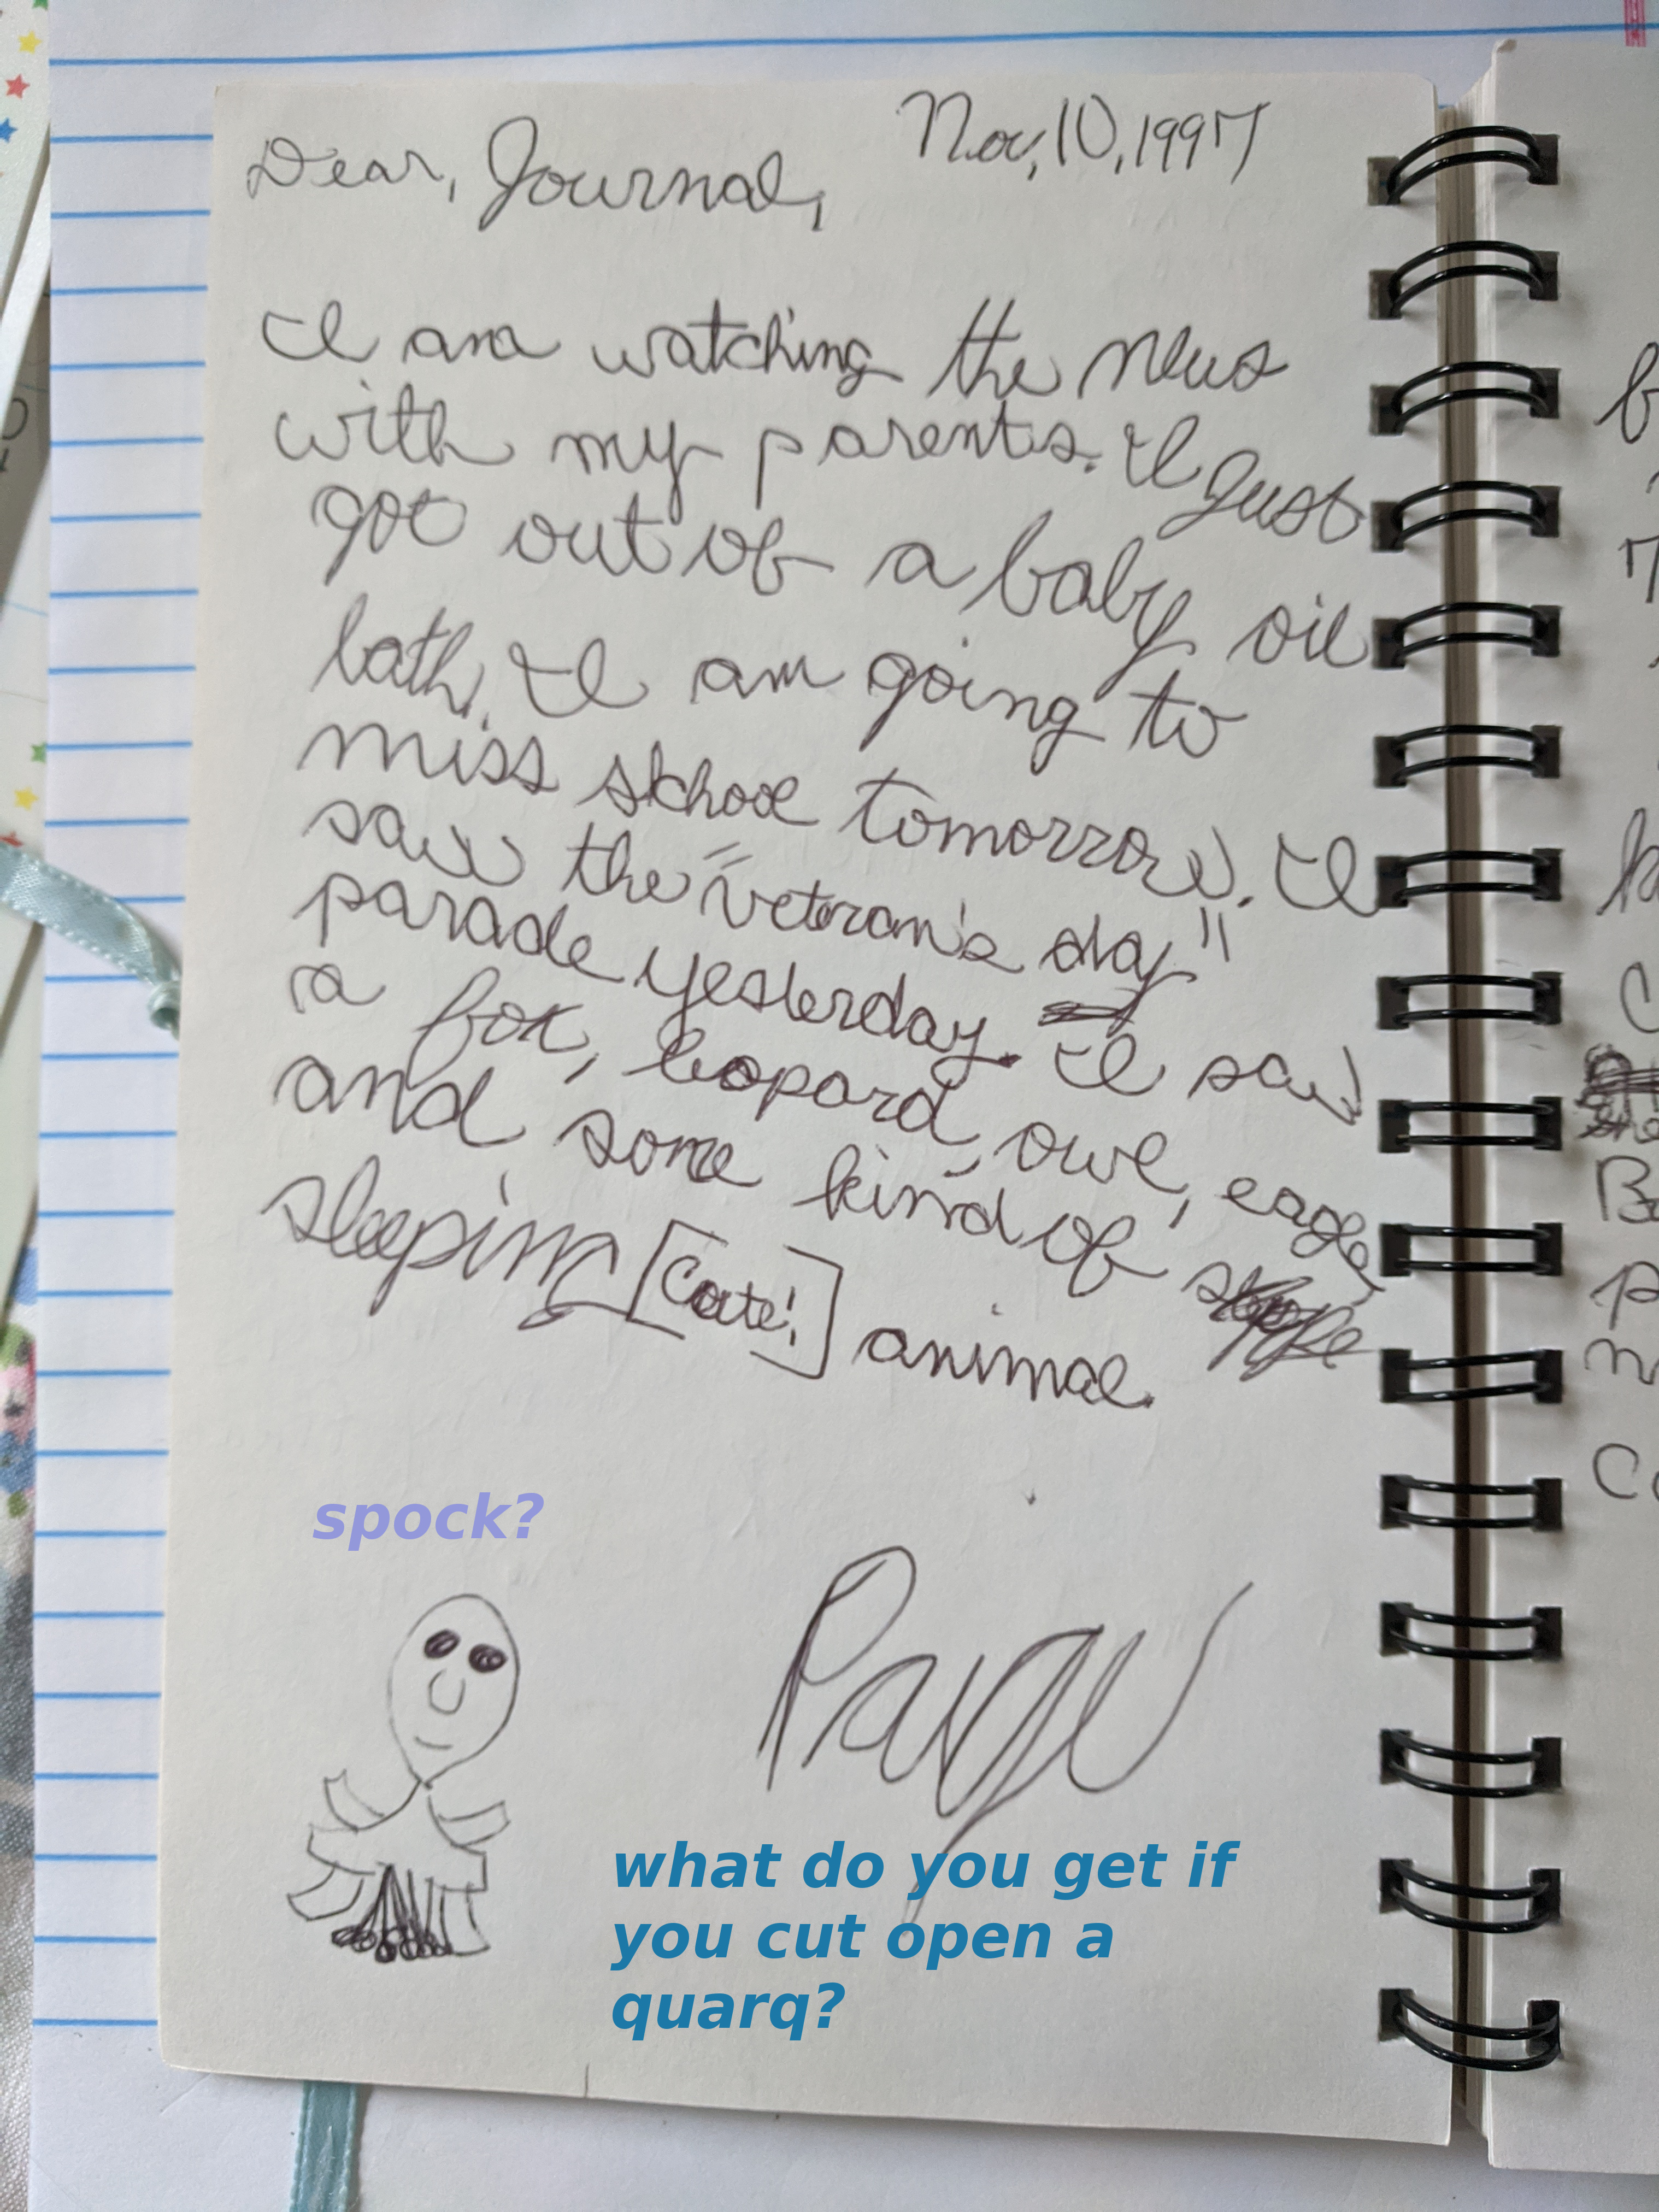 Nov, 10, 1997
Dear, Journal,
I am watching the news
with my parents. I just
got out of a baby oil
bath. I am going to
miss school tomorrow. I
saw the "veteran's day"
parade yesterday. I saw
a fox, leopard, owl, eagle,
and some kind of
sleeping [Cute!] animal.
spock?
Page
what do you get if
you cut open a
quarq?